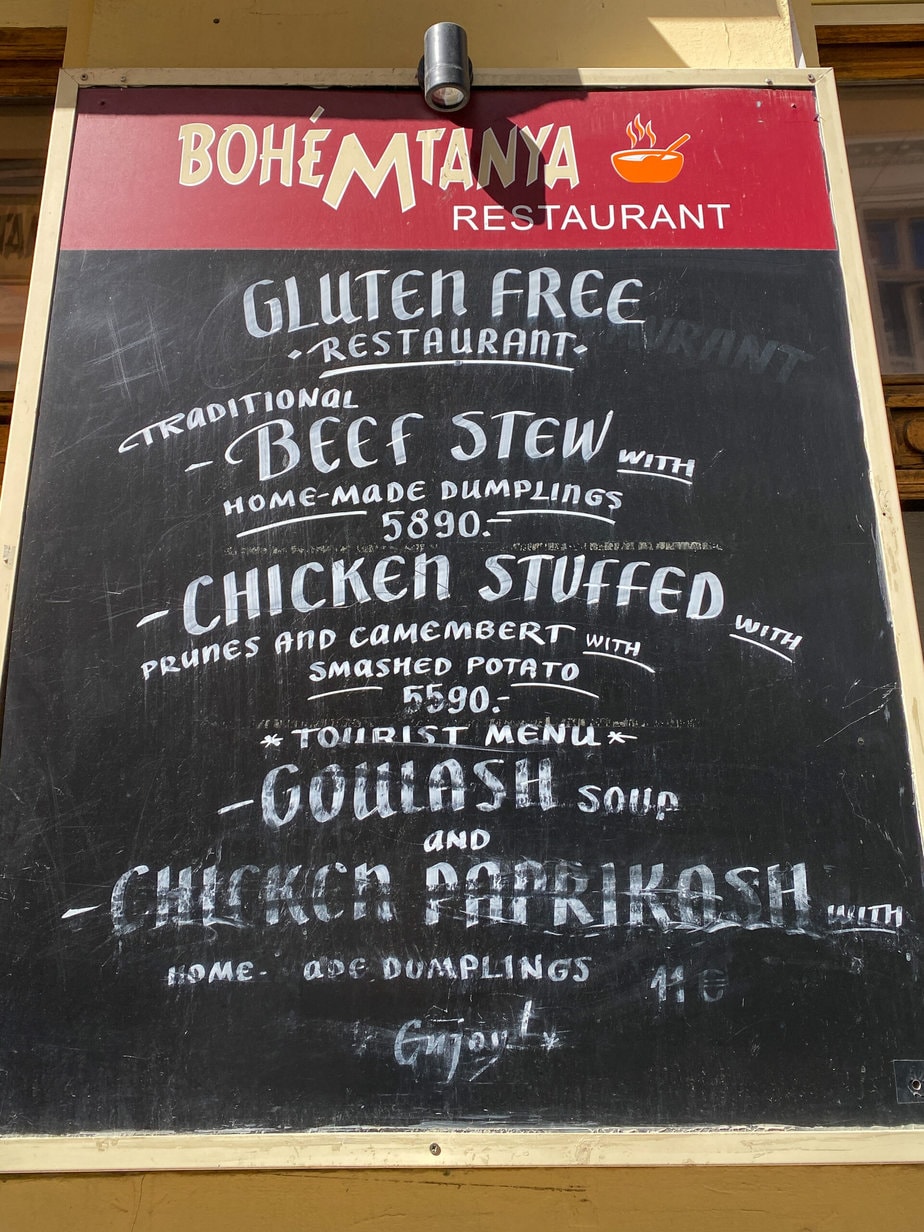 BOHÉMTANYA
RESTAURANT
GLUTEN FREE
·RESTAURANT·
TRADITIONAL
- BEEF STEW WITH
HOME-MADE DUMPLINGS
5890.-
- CHICKEN STUFFED WITH
PRUNES AND CAMEMBERT WITH
SMASHED POTATO
5590.-
* TOURIST MENU *
- GOULASH SOUP
AND
- CHICKEN PAPRIKASH WITH
HOME- ADE DUMPLINGS 11€
Enjoy!